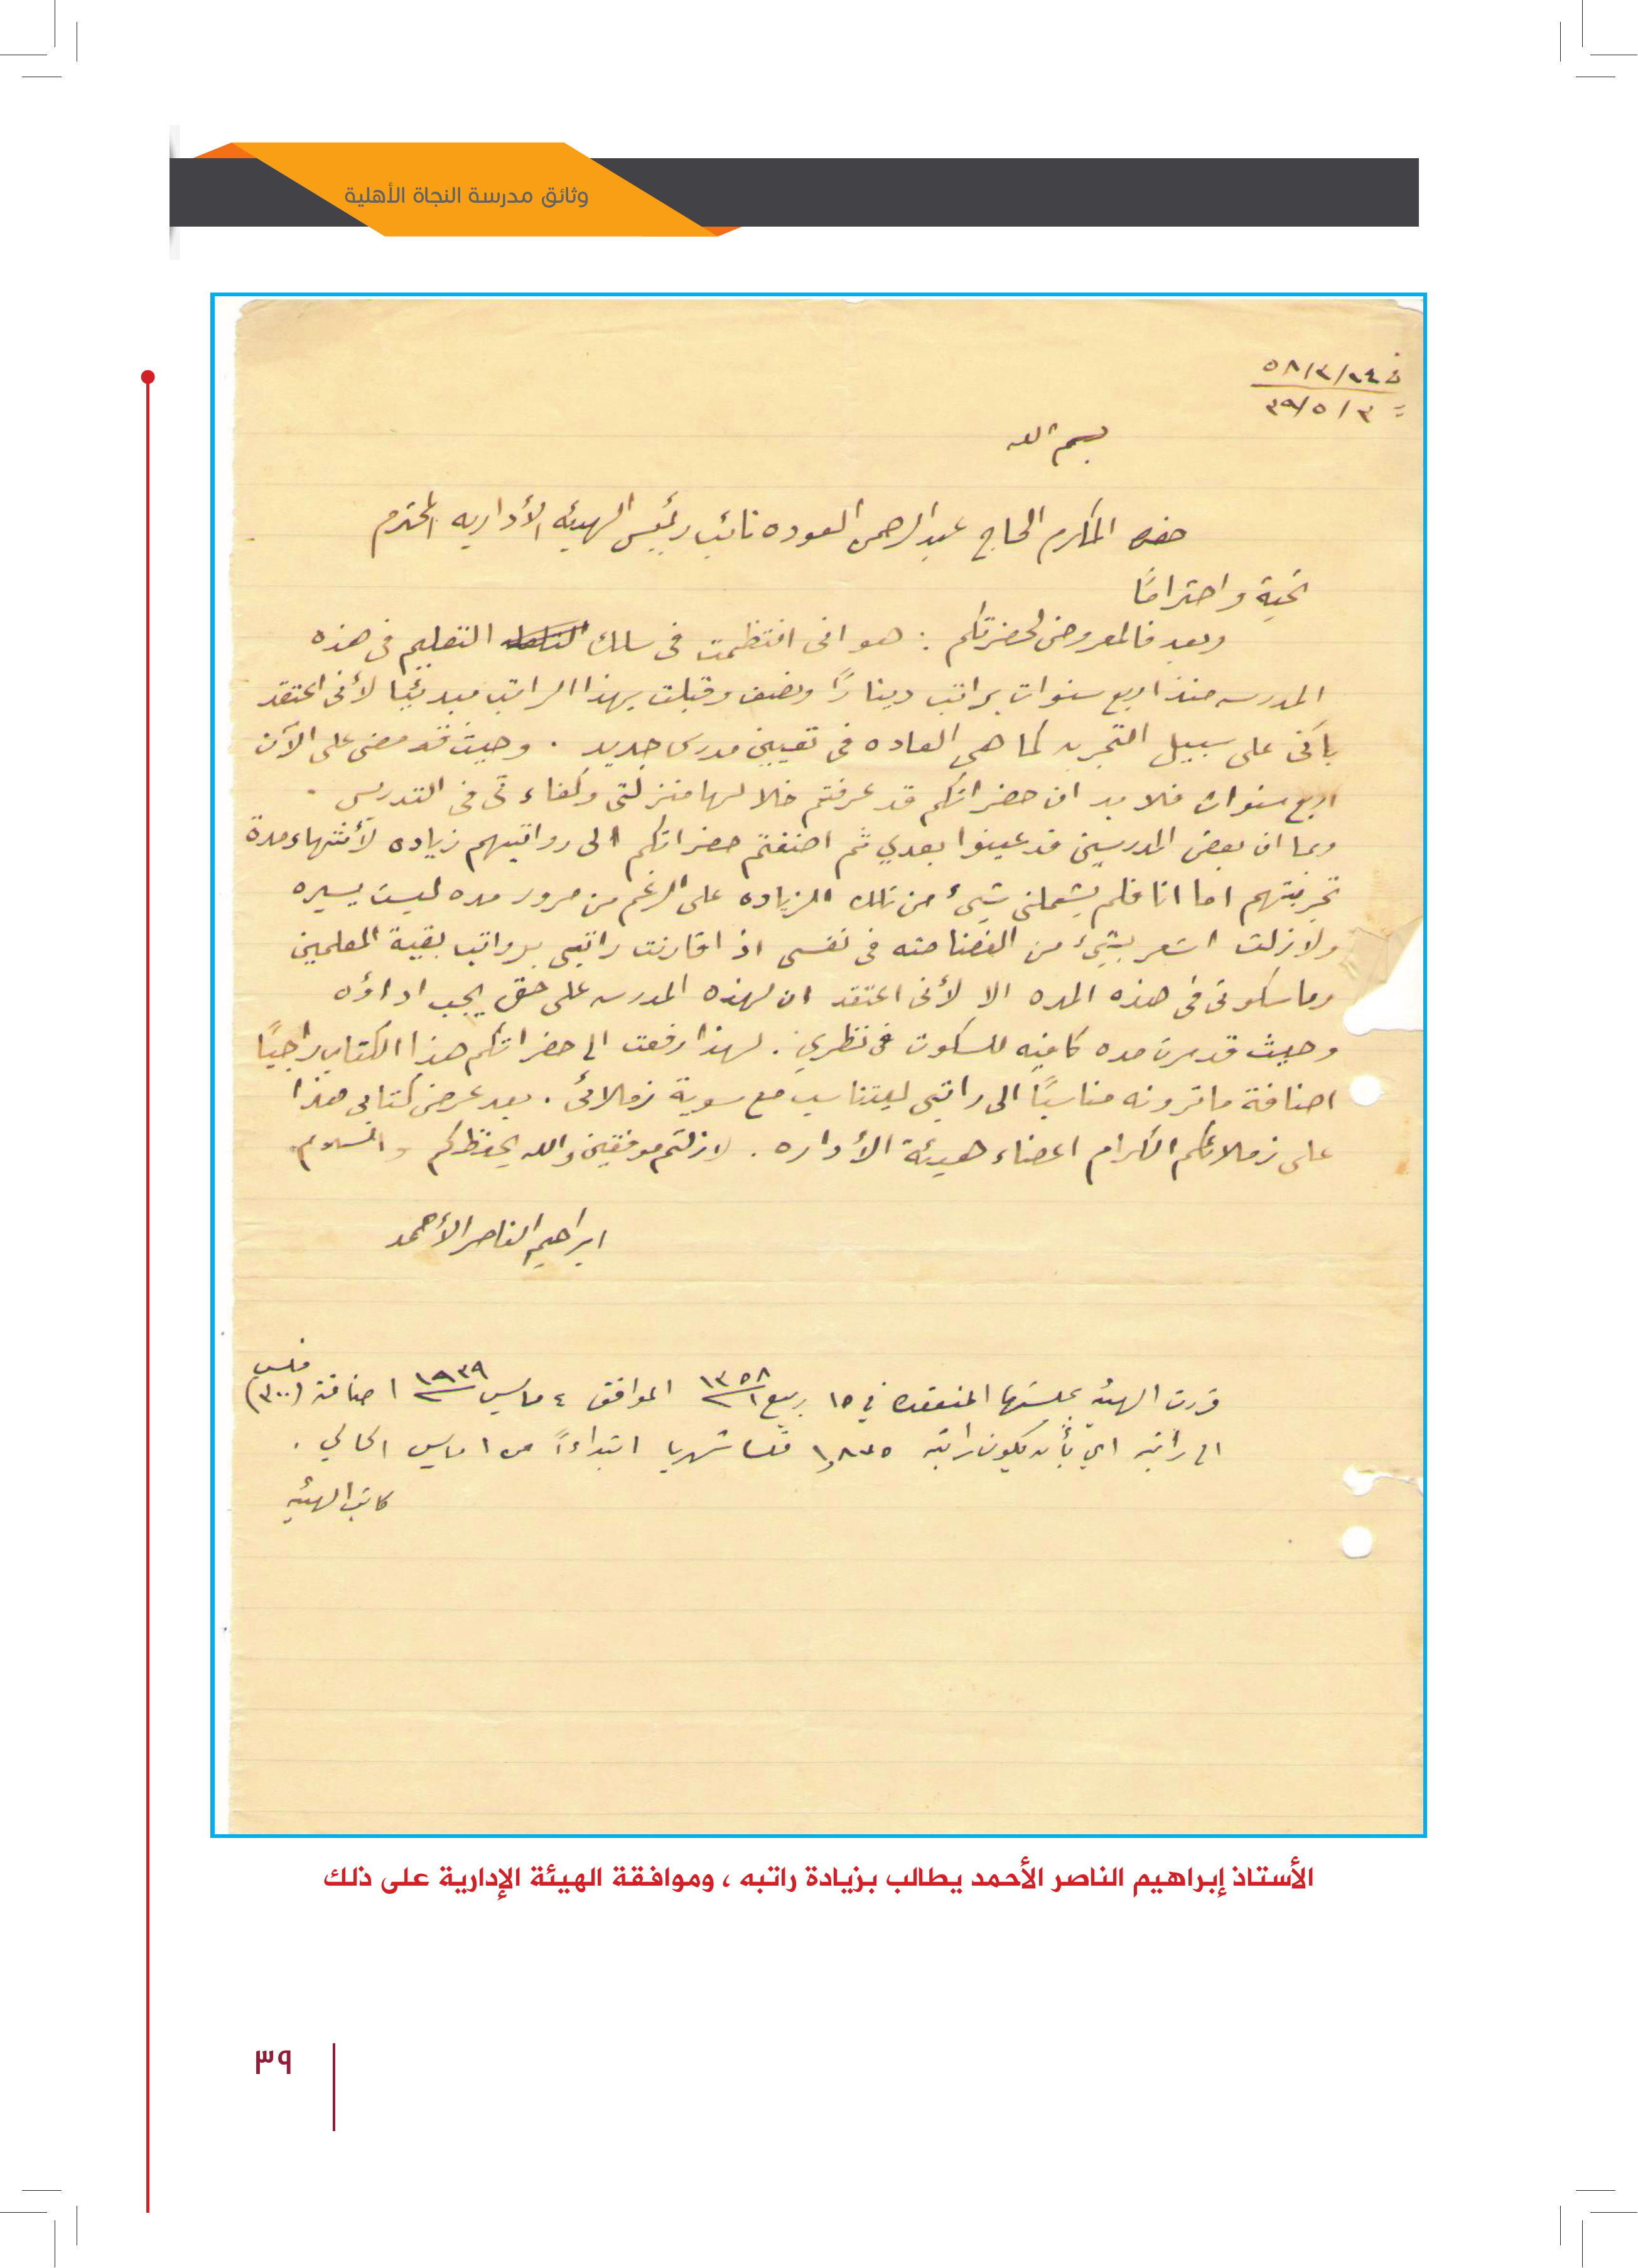 وثائق مدرسة النجاة الأهلية
في ١٤/٣/٥٨
= ٣/٥/٣٩
بسم الله
حضرة المكرم الحاج عبدالرحمن العوده نائب رئيس الهيئه الأداريه المحترم
تحية واحترامًا
وبعد فالمعروض لحضرتكم : هو انى انتظمت فى سلك التعليم فى هذه
المدرسه منذ اربع سنوات براتب دينارًا ونصف وقبلت بهذا الراتب مبدئيا لأنى اعتقد
بأنى على سبيل التجربه كما هى العاده فى تعيين مدرس جديد . وحيث قد مضى على الآن
اربع سنوات فلا بد ان حضراتكم قد عرفتم خلالها منزلتى وكفاءتى فى التدريس .
وبما ان بعض المدرسين قد عينوا بعدي ثم اضفتم حضراتكم الى رواتبهم زياده لأنتهاء مدة
تجربتهم اما انا فلم يشملنى شيئ من تلك الزياده على الرغم من مرور مده ليست يسيره
ولا زلت اشعر بشيئ من الغضاضه فى نفسى اذ اقارنت راتبى برواتب بقية المعلمين
وما سكوتى فى هذه المده الا لأنى اعتقد ان لهذه المدرسه على حق يجب اداؤه
وحيث قد مرت مده كافيه للسكوت فى نظري . لهذا رفعت الى حضراتكم هذا الكتاب راجيًا
اضافة ما ترونه مناسبًا الى راتبى ليتناسب مع سوية زملائى . بعد عرض كتابى هذا
على زملائكم الكرام اعضاء هيئة الأداره . لازلتم موفقين والله يحفظكم والسلام
ابراهيم الناصر الأحمد
قررت الهيئه بجلستها المنعقده في ١٥ ربيع١ ١٣٥٨ الموافق ٤ مايس ١٩٣٩ اضافة (٣٠٠) فلس
الى راتبه اي بأن يكون راتبه ١,٨٧٥ فلسا شهريا ابتداءاً من ١ مايس الحالي .
كاتب الهيئه
الأستاذ إبراهيم الناصر الأحمد يطالب بزيادة راتبه ، وموافقة الهيئة الإدارية على ذلك
٣٩